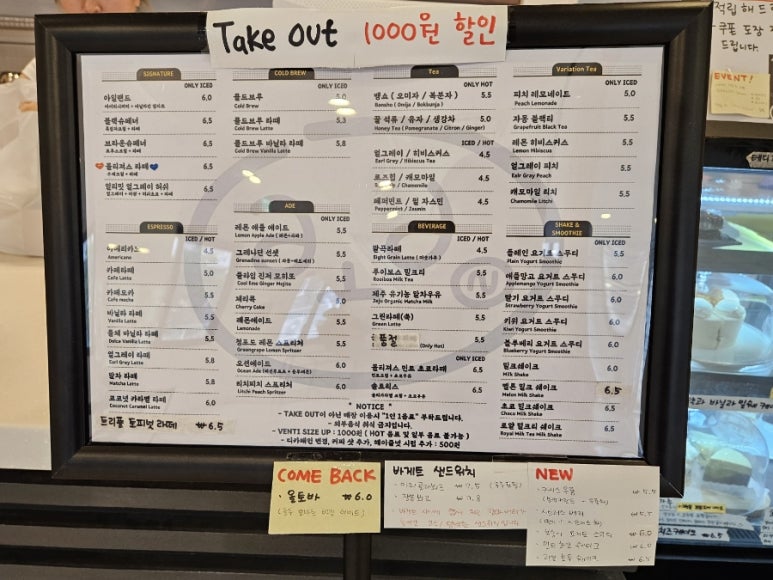 Take out 1000원 할인
적립 해 드
쿠폰 도장
드립니다.
EVENT!
SIGNATURE
ONLY ICED
아일랜드 6.0
블랙슈페너 6.5
브라운슈페너 6.5
라떼 6.5
얼리밋 얼그레이 허쉬 6.5
ESPRESSO
ICED / HOT
아메리카노 4.5
Americano
카페라떼 5.0
Cafe Latte
카페모카 5.5
Cafe mocha
바닐라 라떼 5.5
Vanilla Latte
돌체 바닐라 라떼 5.5
Dolce Vanilla Latte
얼그레이 라떼 5.8
Earl Grey Latte
말차 라떼 5.8
Matcha Latte
코코넛 카라멜 라떼 6.0
Coconut Caramel Latte
트리플 토피넛 라떼 ₩6.5
COLD BREW
ONLY ICED
콜드브루 5.0
Cold Brew
콜드브루 라떼 5.3
Cold Brew Latte
콜드브루 바닐라 라떼 5.8
Cold Brew Vanilla Latte
ADE
ONLY ICED
레몬 애플 에이드 5.5
Lemon Apple Ade
그레나딘 선셋 5.5
Grenadine sunset
쿨라임 진저 모히또 5.5
Cool lime Ginger Mojito
체리콕 5.0
Cherry Coke
레몬에이드 5.5
Lemonade
청포도 레몬 스프리처 5.5
Greengrape Lemon Spritzer
오션에이드 6.0
Ocean Ade
리치피치 스프리처 6.5
Litchi Peach Spritzer
Tea
ONLY HOT
뱅쇼 ( 오미자 / 복분자 ) 5.5
Bansho ( Omija / Bokbunja )
꿀 석류 / 유자 / 생강차 5.0
Honey Tea ( Pomegranate / Citron / Ginger)
ICED / HOT
얼그레이 / 히비스커스 4.5
Earl Grey / Hibiscus Tea
로즈힙 / 캐모마일 4.5
/ Chamomile
페퍼민트 / 펄 자스민 4.5
Peppermint / Jasmin
BEVERAGE
ICED / HOT
팔곡라떼 4.5
Eight Grain Latte
루이보스 밀크티 5.5
Rooibos Milk Tea
제주 유기농 말차우유 5.5
Jeju Organic Matcha Milk
그린라떼(쑥) 5.5
Green Latte
품절 5.5
(Only Hot)
ONLY ICED
민트 초코라떼 6.5
6.5
Variation Tea
ONLY ICED
피치 레모네이드 5.0
Peach Lemonade
자몽 블랙티 5.5
Grapefruit Black Tea
레몬 히비스커스 5.5
Lemon Hibiscus
얼그레이 피치 5.5
Ealr Gray Peach
캐모마일 리치 5.5
Chamomile Litchi
SHAKE &
SMOOTHIE
ONLY ICED
플레인 요거트 스무디 5.5
Plain Yogurt Smoothie
애플망고 요거트 스무디 6.0
Applemango Yogurt Smoothie
딸기 요거트 스무디 6.0
Strawberry Yogurt Smoothie
키위 요거트 스무디 6.0
Kiwi Yogurt Smoothie
블루베리 요거트 스무디 6.0
Blueberry Yogurt Smoothie
밀크쉐이크 6.0
Milk Shake
멜론 밀크 쉐이크 6.5
Melon Milk Shake
초코 밀크쉐이크 6.5
Choco Milk Shake
로얄 밀크티 쉐이크 6.5
Royal Milk Tea Shake
* NOTICE *
- TAKE OUT이 아닌 매장 이용시 "1인 1음료" 부탁드립니다.
- 외부음식 취식 금지입니다.
- VENTI SIZE UP : 1000원 ( HOT 음료 및 일부 음료 불가능 )
- 디카페인 변경, 커피 샷 추가, 메이플넛 시럽 추가 : 500원
COME BACK
· 올토바 ₩6.0
바게트 샌드위치
₩7.5
· 잠봉뵈르 ₩7.8
NEW
₩5.5
₩5.5
₩6.0
₩6.0
₩6.5